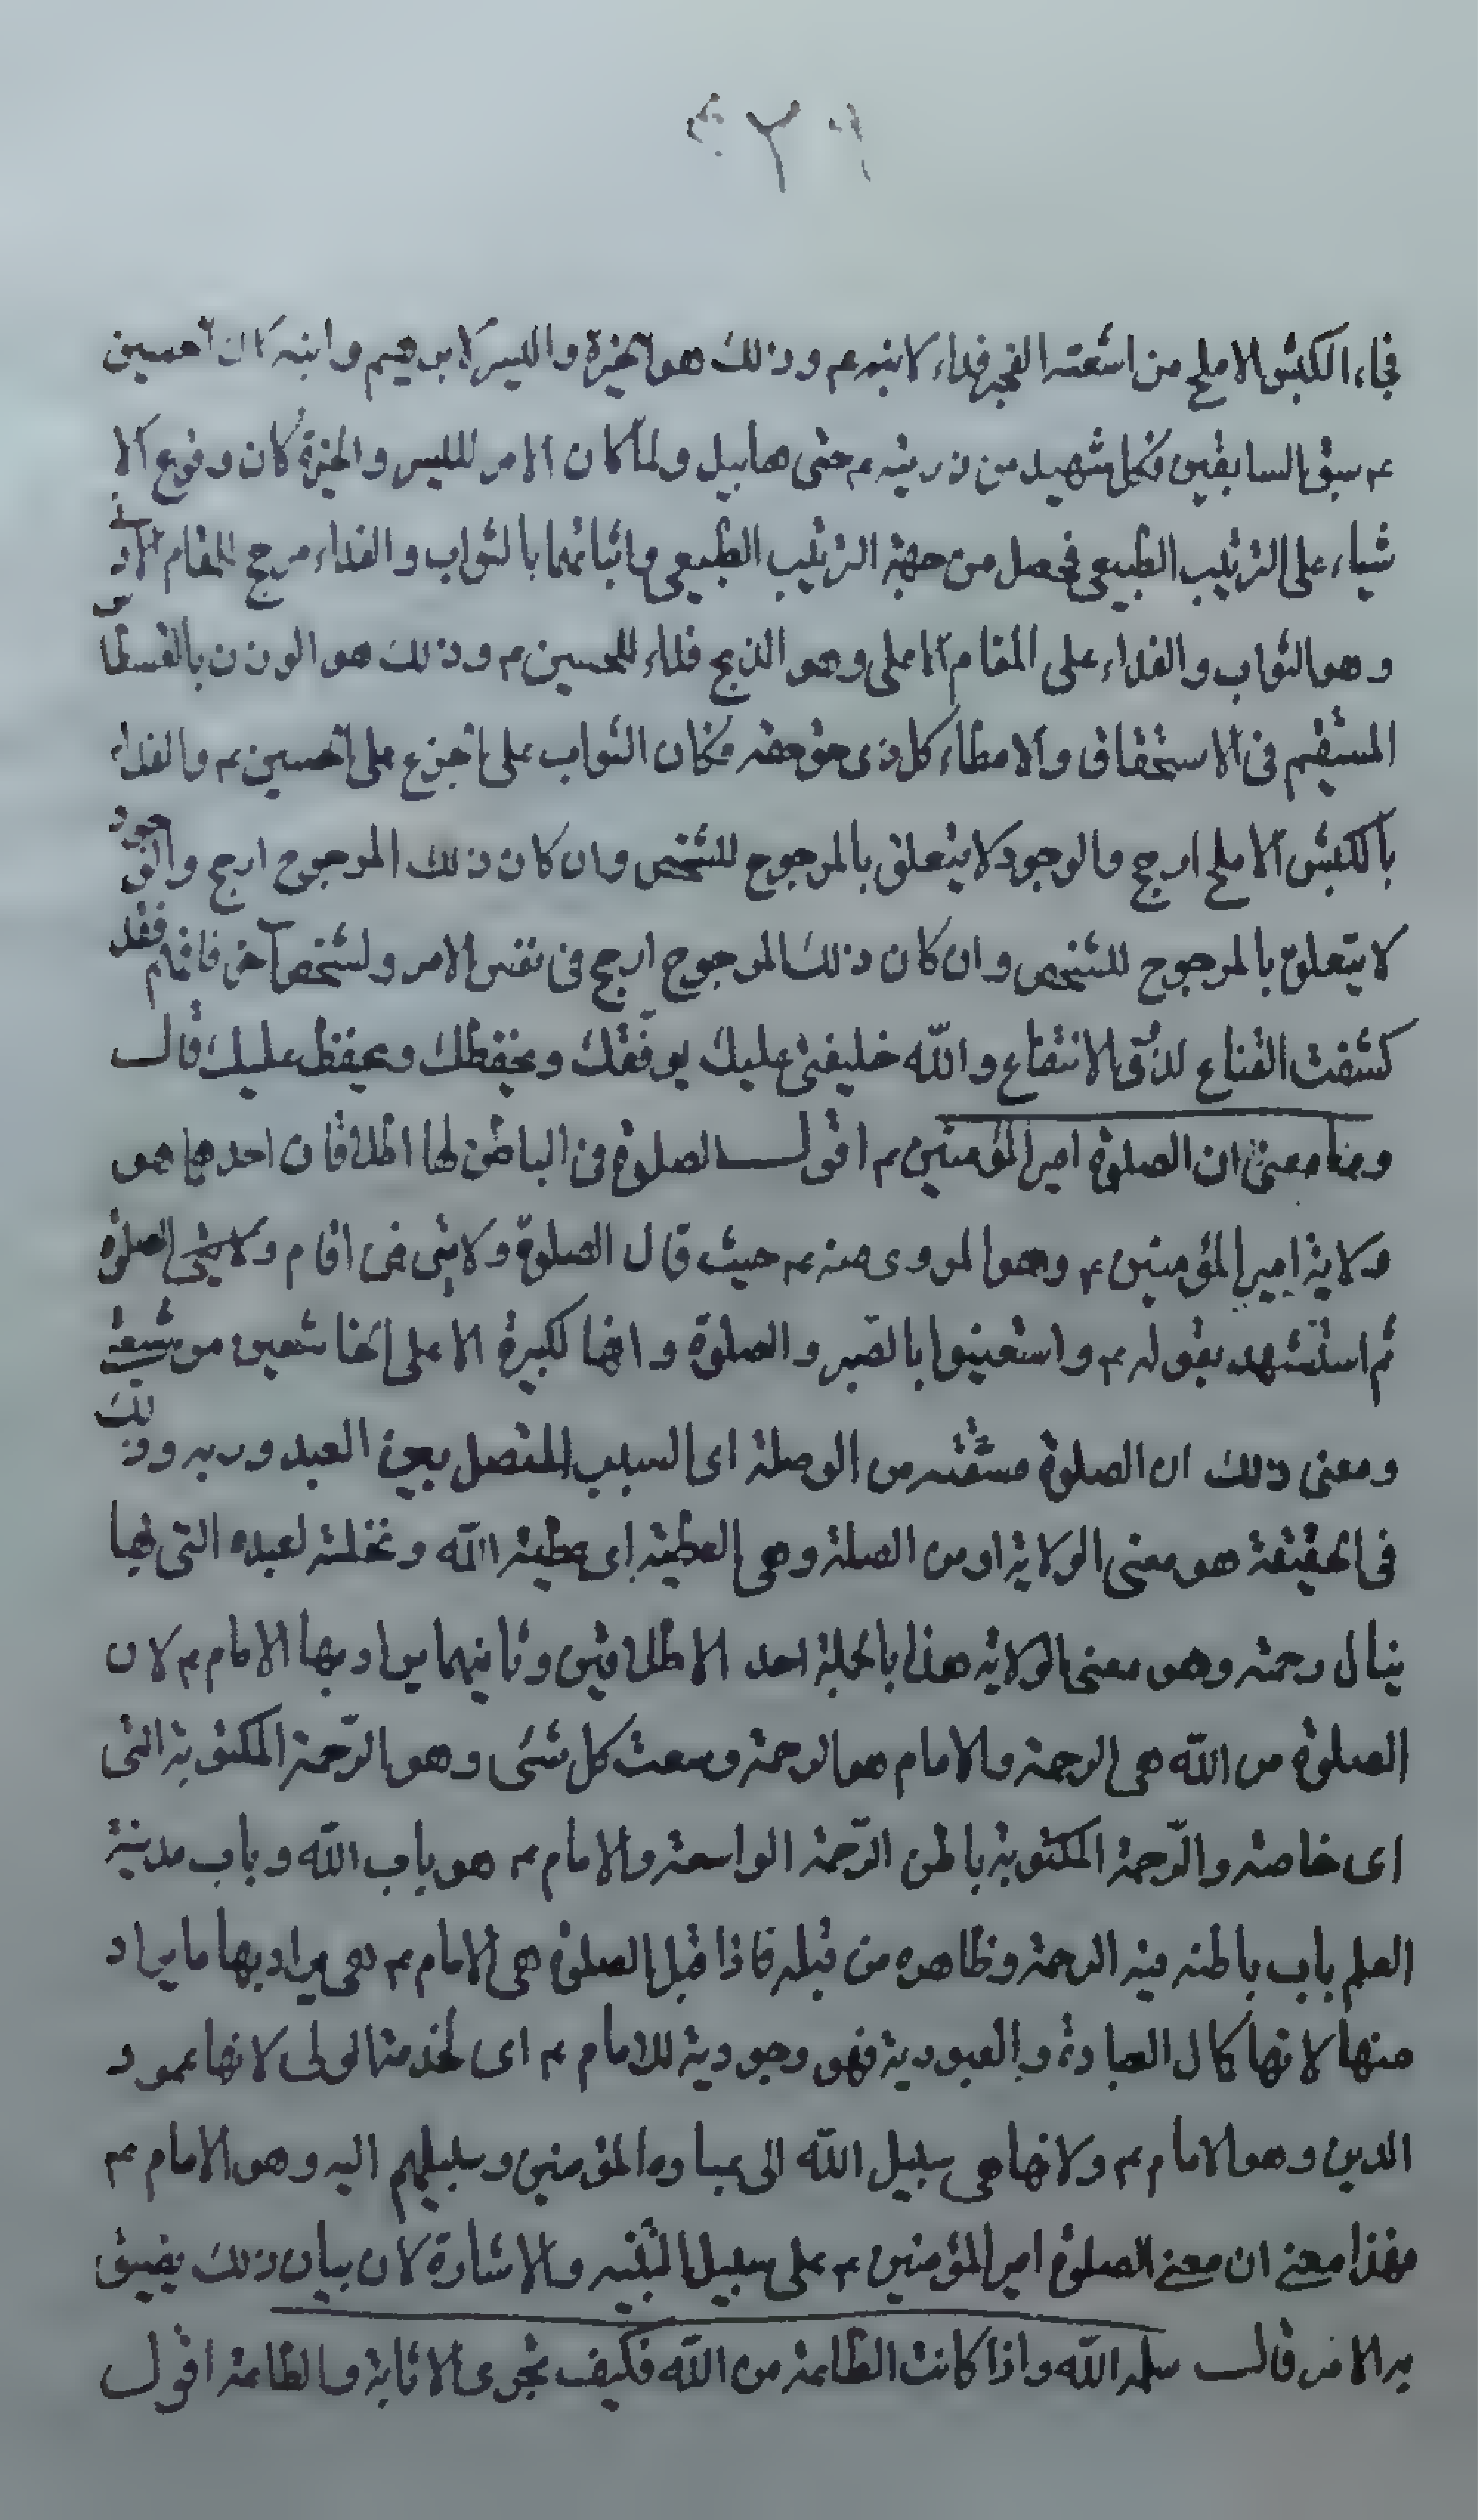 فجاء الكبش الاملح من اشعته الفجر فداء لابنه عم وذلك هو الخيرة واليسر لابرهيم وابنه كان الحسين
عم سبق السابقين فكل شهيد من ذريته عم حتى هابيل ولما كان الامر لليسر والخيرة كان وقوع الا
شياء على الترتيب الطبيعي فحصل من جهة الترتيب الطبيعي واثباتهما بالثواب والفداء مرجح للمقام الادنى
وهو الثواب والفداء على المقام الاعلى وهو الذبح فداء للحسين عم وذلك هو الوزن بالقسطاس
المستقيم في الاستحقاق والاعطاء كل ذي حق حقه فكان الثواب على الجزع على الحسين عم والفداء
بالكبش الاملح ارجح والوجود لا يتعلق بالمرجوح للشخص وان كان ذلك المرجوح ارجح والوجود
لا يتعلق بالمرجوح للشخص وان كان ذلك المرجوح ارجح في نفس الامر ولشخص آخر فافهم فقد
كشفت القناع لذي الانتفاع والله خليفتي عليك يوفقك ويحفظك ويحفظ عليك قال
وما معنى ان الصلوة امير المؤمنين عم اقول الصلوة في الباطن لها اطلاقان احدهما هو
ولاية امير المؤمنين عم وهو المروي عنه عم حيث قال الصلوة ولايتي فمن اقام ولايتي الصلوة
ثم استشهد بقوله عم واستعينوا بالصبر والصلوة وانها لكبيرة الا على الخاشعين من شيعتي
ومعنى ذلك ان الصلوة مشتقه من الوصلة اى السبب المتصل بين العبد وربه وذلك
في الحقيقة هو معنى الولاية او من الصلة وهي العطية اى عطية الله ونحلته لعبده التي بها
ينال رحمته وهو معنى الولاية هذا بالجملة احد الاطلاقين وثانيهما يراد بها الامام عم لان
الصلوة من الله هي الرحمة والامام هو الرحمة وسعت كل شئ وهو الرّحمة المكتوبة التي
اى خاصة والرّحمة المكتوبة باطن الرّحمة الواسعة والامام عم هو باب الله وباب مدينة
العلم باب باطنه فيه الرحمة وظاهره من قبله فاذا قبل الصلوة هي الامام عم فهي يراد بها ما يراد
منها لانها كال العبادة والعبودية فهو وجودية للامام عم اى لخدمة الولى لانها عمود
الدين وهو الامام عم ولانها هي سبيل الله الى عباده المؤمنين وسبيلهم اليه وهو الامام عم
فهذا معنے ان معنے الصلوة امير المؤمنين عم على سبيل التنبيه والاشارة لان بيان ذلك يضيق
به الامر قال سلمه الله واذا كانت الطاعة من الله فكيف تجرى الاثابة والطاعة اقول